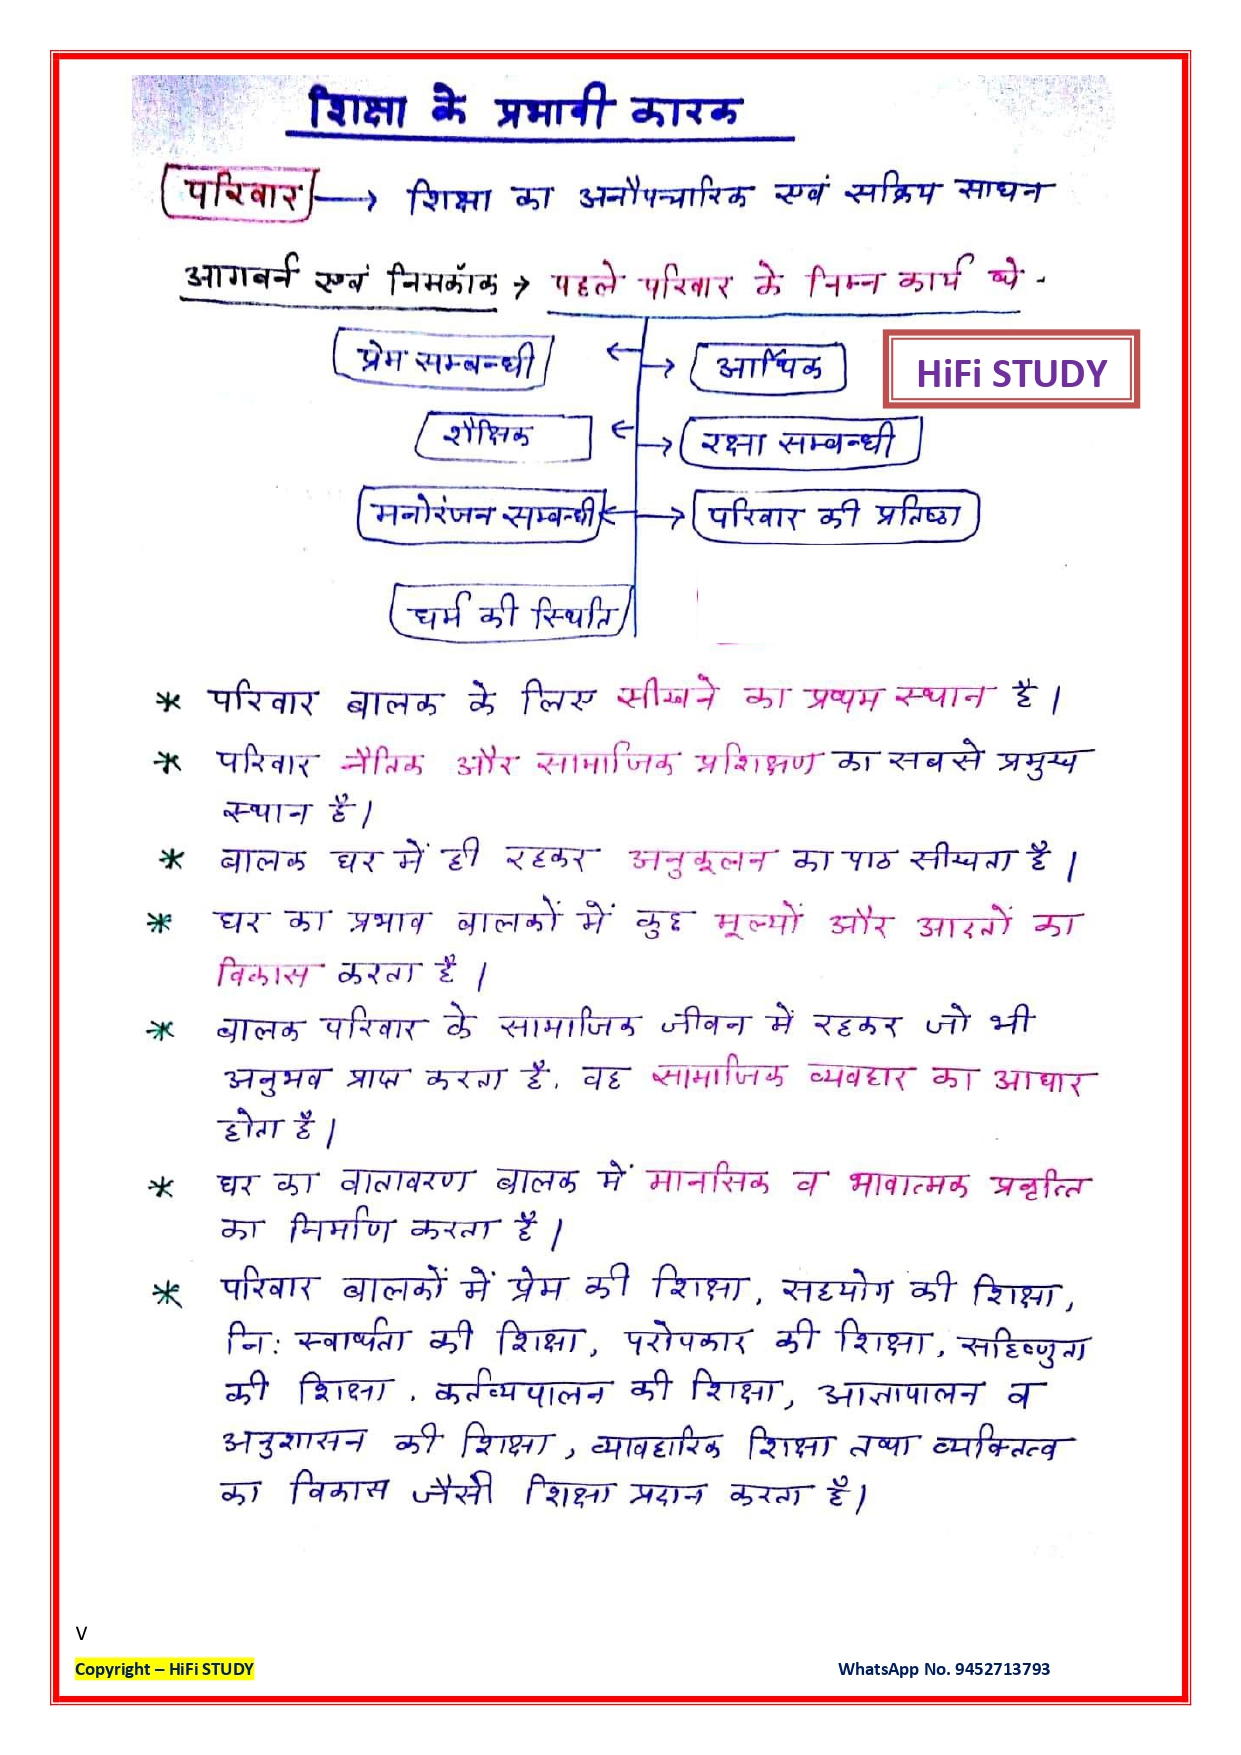 शिक्षा के प्रभावी कारक
परिवार → शिक्षा का अनौपचारिक एवं सक्रिय साधन
आगबर्न एवं निमकॉक → पहले परिवार के निम्न कार्य थे -
प्रेम सम्बन्धी ← → आर्थिक
HiFi STUDY
शैक्षिक ← → रक्षा सम्बन्धी
मनोरंजन सम्बन्धी ← → परिवार की प्रतिष्ठा
धर्म की स्थिति
* परिवार बालक के लिए सीखने का प्रथम स्थान है।
* परिवार नैतिक और सामाजिक प्रशिक्षण का सबसे प्रमुख
स्थान है।
* बालक घर में ही रहकर अनुकूलन का पाठ सीखता है।
* घर का प्रभाव बालकों में कुछ मूल्यों और आदतों का
विकास करता है।
* बालक परिवार के सामाजिक जीवन में रहकर जो भी
अनुभव प्राप्त करता है, वह सामाजिक व्यवहार का आधार
होता है।
* घर का वातावरण बालक में मानसिक व भावात्मक प्रवृत्ति
का निर्माण करता है।
* परिवार बालकों में प्रेम की शिक्षा, सहयोग की शिक्षा,
नि: स्वार्थता की शिक्षा, परोपकार की शिक्षा, सहिष्णुता
की शिक्षा, कर्तव्यपालन की शिक्षा, आज्ञापालन व
अनुशासन की शिक्षा, व्यावहारिक शिक्षा तथा व्यक्तित्व
का विकास जैसी शिक्षा प्रदान करता है।
V
Copyright – HiFi STUDY WhatsApp No. 9452713793